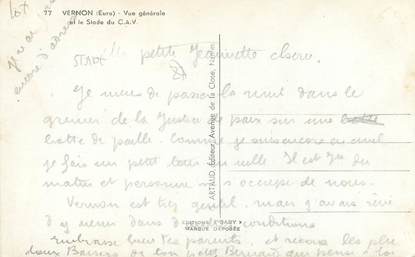 77 VERNON (Eure) - Vue générale
et le Stade du C.A.V.
STADE
Ma petite Jeannette chère.
Je viens de passer la nuit dans le
grenier de la Justice de paix sur une
botte de paille. Comme je suis encore au civil
je fais un petit tour en ville. Il est 7h du
matin et personne ne s'occupe de nous.
Vernon est très gentil. mais j'avais rêvé
d'y venir dans d'autres conditions
Embrasse bien tes parents et reçois les plus
doux Baisers de ton petit Bernard qui pense à toi
ARTAUD, Éditeur, Avenue de la Close, Nantes
ÉDITIONS "GABY"
MARQUE DÉPOSÉE